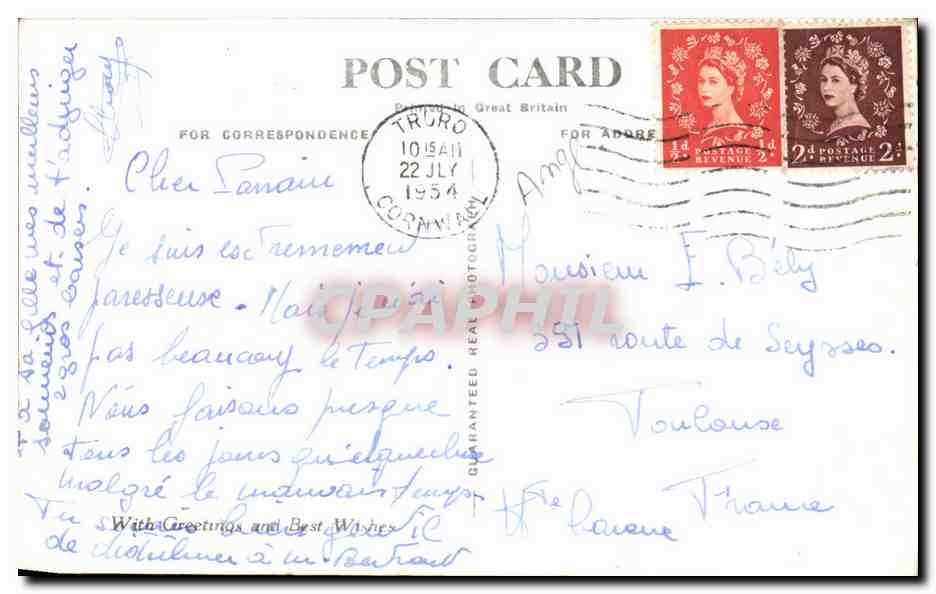 POST CARD
Printed in Great Britain
FOR CORRESPONDENCE
FOR ADDRE
TRURO
10 15 AM
22 JLY
1954
CORNWALL
½d POSTAGE REVENUE ½d
2d POSTAGE REVENUE 2d
Angl
Cher Parrain
Je suis extremement
paresseuse. Mais je n'ai
pas beaucoup le temps.
Nous faisons presque
tous les jours
malgré le mauvais temps
Tu
de à M. Bertrant
et à sa fille mes meilleurs
souvenirs et de t'adresser
2 gros baisers.
Monsieur E. Bély
391 route de Seysses.
Toulouse
Hte Garonne France
GUARANTEED REAL PHOTOGRAPH
With Greetings and Best Wishes
CPAPHIL